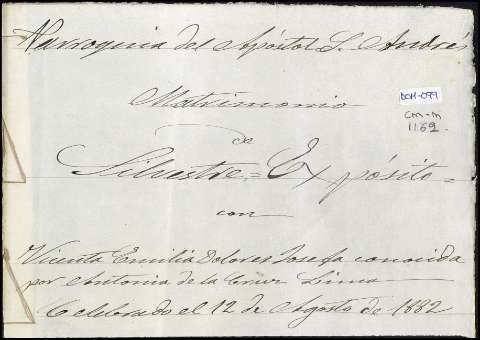 Parroquia del Apóstol S. Andrés
DOM-099
Matrimonio
CM-M
1169
de
Silvestre = Expósito =
con
Vicenta Emilia Dolores Josefa conocida
por Antonia de la Cruz Lima
Celebrado el 12 de Agosto de 1882